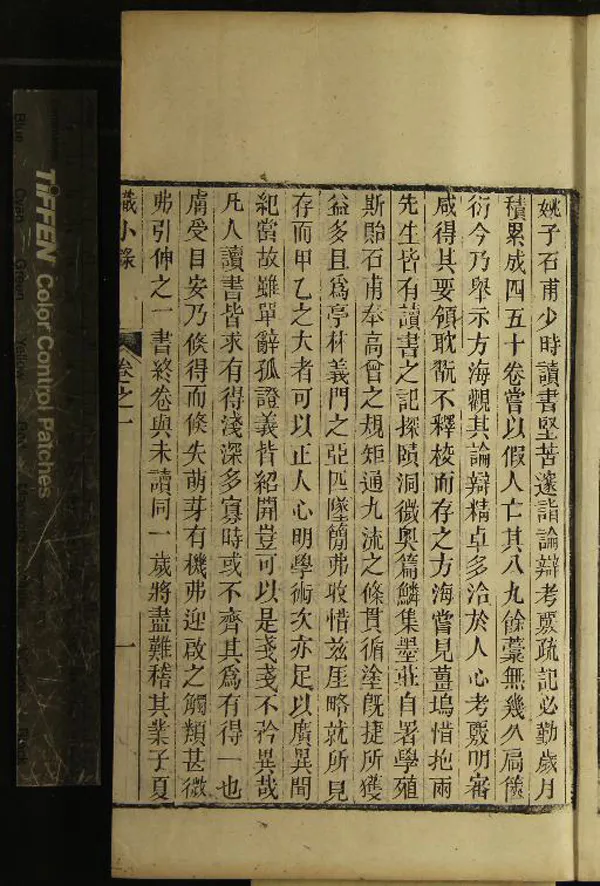 姚子石甫少時讀書堅苦邃詣論辯考覈疏記必勤歲月
積累成四五十卷嘗以假人亡其八九餘藁無幾久扃篋
衍今乃舉示方海觀其論辯精卓多洽於人心考覈明審
咸得其要領耽翫不釋棱而存之方海嘗見薑塢惜抱兩
先生皆有讀書之記探賾洞微奧篇鱗集墨莊自署學殖
斯貽石甫奉高曾之規矩通九流之條貫循塗旣捷所獲
益多且爲亭林義門之亞匹墜簡弗收惜茲厓略就所見
存而甲乙之大者可以正人心明學術次亦足以廣異聞
紀當故雖單辭孤證義皆紹開豈可以是戔戔不矜異哉
凡人讀書皆求有得淺深多寡時或不齊其爲有得一也
膚受目安乃倏得而倏失萌芽有機弗迎啟之觸類甚微
弗引伸之一書終卷與未讀同一歲將盡難稽其業子夏
識小錄
卷之一
一
TIFFEN Color Control Patches
Blue
Cyan
Green
Yellow
Red